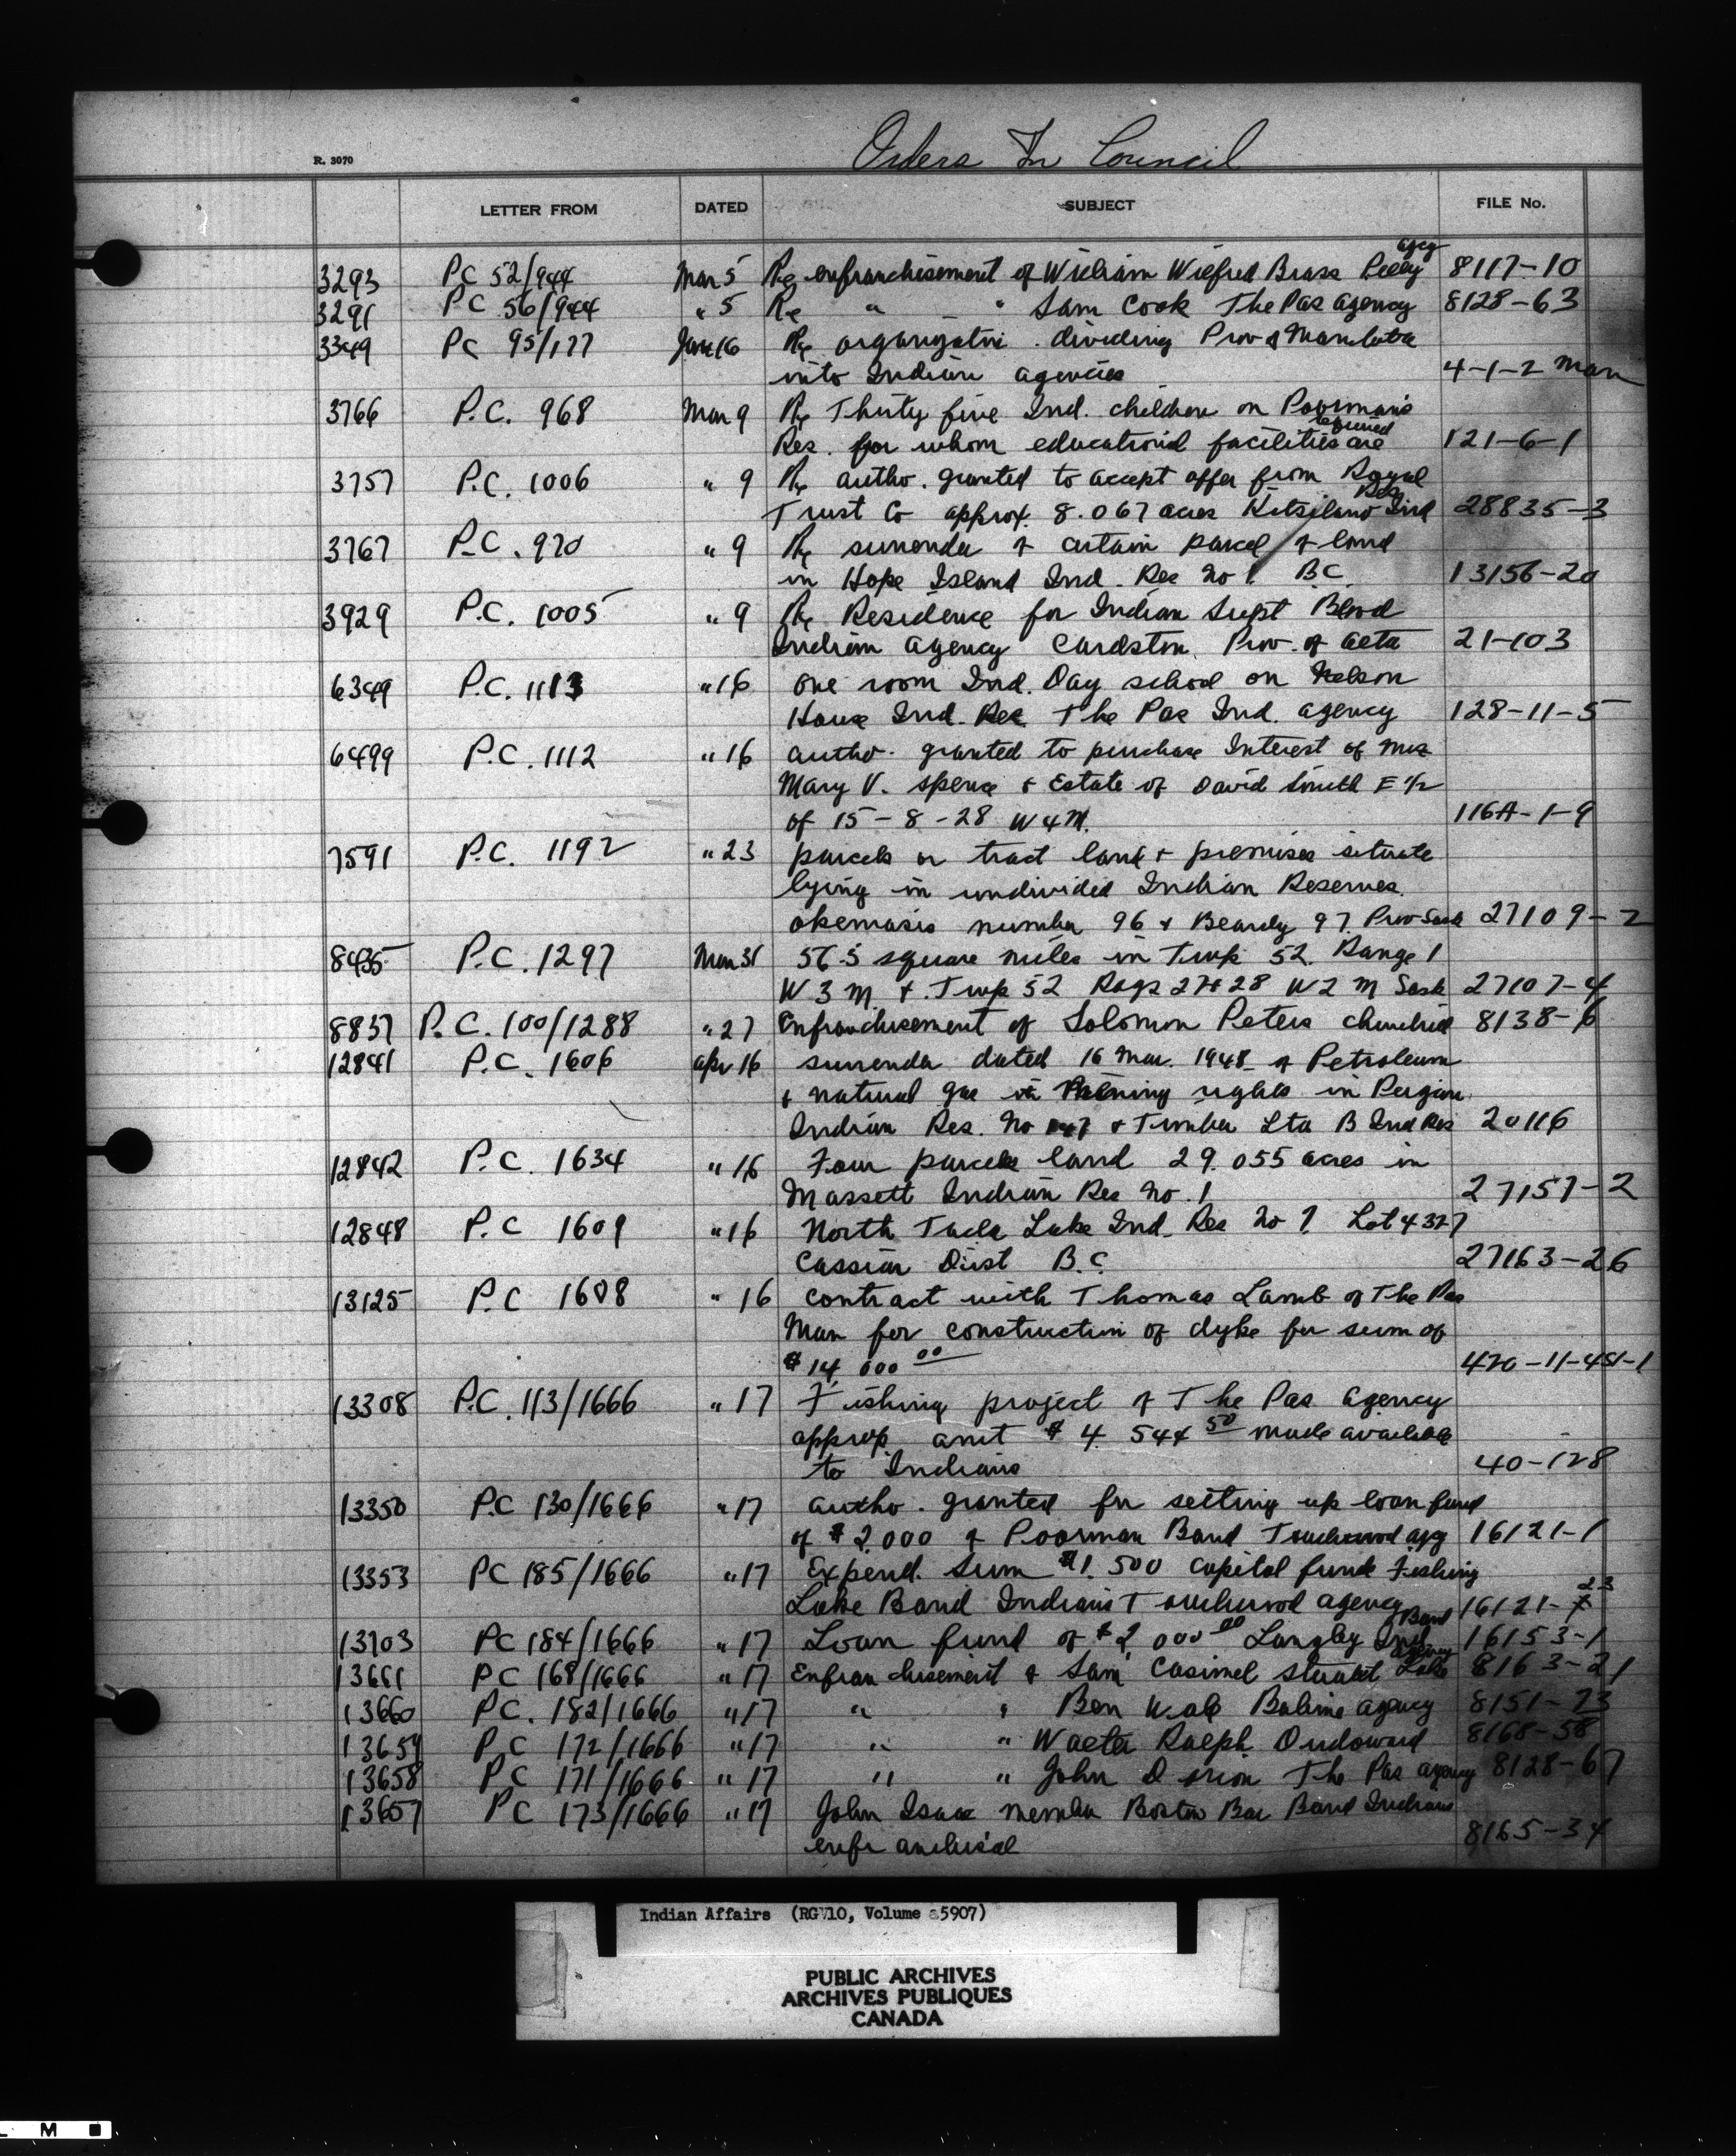 Orders In Council
R. 3070
LETTER FROM DATED SUBJECT FILE No.
agcy
3293 PC 52/944 Mar 5 Re enfranchisement of William Wilfred Brass Pelly 8117-10
3291 PC 56/944 " 5 Re " " Sam Cook The Pas agency 8128-63
3349 PC 95/177 Jan 16 Re dividing Prov of Manitoba
into Indian agencies 4-1-2 Man
3766 P.C. 968 Mar 9 Re Thirty five Ind. children on Poorman's
required
Res. for whom educational facilities are 121-6-1
3757 P.C. 1006 " 9 Re autho. granted to accept offer from Royal
Res
Trust Co approx. 8.067 acres Kitsilano Ind 28835-3
3767 P.C. 970 " 9 Re surrender of certain parcel of land
in Hope Island Ind. Res No 1. B.C. 13156-20
3929 P.C. 1005 " 9 Re Residence for Indian Supt Blood
Indian Agency Cardston, Prov. of Alta 21-103
6349 P.C. 1113 " 16 one room Ind. Day school on Nelson
House Ind. Res. The Pas Ind. agency 128-11-5
6499 P.C. 1112 " 16 autho. granted to purchase Interest of Mrs
Mary V. Spence & Estate of David Smith E 1/2
of 15-8-28 W4M. 116A-1-9
7591 P.C. 1192 " 23 parcels or tract land & premises situate
lying in undivided Indian Reserves
Okemasis number 96 & Beardy 97. Prov Sask 27109-2
8435 P.C. 1297 Mar 31 56.5 square miles in Twp 52. Range 1
W 3 M. & Twp 52 Rags 27+28 W2 M Sask 27107-4
8837 P.C. 100/1288 " 27 Enfranchisement of Solomon Peters 8138-6
12841 P.C. 1606 Apr 16 surrender dated 16 Mar. 1948 of Petroleum
& natural gas & mining rights in Peigan
Indian Res. No 147 & Timber Lta B Ind Res 20116
12842 P.C. 1634 " 16 Four parcels land 29.055 acres in
Massett Indian Res No. 1 27157-2
12848 P.C 1609 " 16 North Tacla Lake Ind. Res No 7 Lot 4327
Cassiar Dist B.C. 27163-26
13125 P.C 1608 " 16 contract with Thomas Lamb of The Pas
Man for construction of dyke for sum of
$14,000 00 420-11-451-1
13308 P.C. 113/1666 " 17 Fishing project of The Pas Agency
approp amt $4 544 50 made available
to Indians 40-128
13350 P.C 130/1666 " 17 autho. granted for setting up loan fund
of $2,000 of Poorman Band Touchwood agcy 16121-1
13353 PC 185/1666 " 17 Expend. Sum $1,500 capital funds Fishing
23
Lake Band Indians Touchwood agency 16121-7
Band
13703 PC 184/1666 " 17 Loan fund of $2,000 00 Langley Ind 16153-1
agency
13661 PC 168/1666 " 17 Enfranchisement of Sam Casimel Stuart Lake 8163-21
13660 PC. 182/1666 " 17 " " Ben agency 8151-23
13659 P.C 172/1666 " 17 " " Walter Ralph 8168-58
13658 PC 171/1666 " 17 " " John The Pas agency 8128-67
13657 PC 173/1666 " 17 John Isaac member Boston Bar Band Indians
enfranchised 8165-34
Indian Affairs (RG 10, Volume 5907)
PUBLIC ARCHIVES
ARCHIVES PUBLIQUES
CANADA